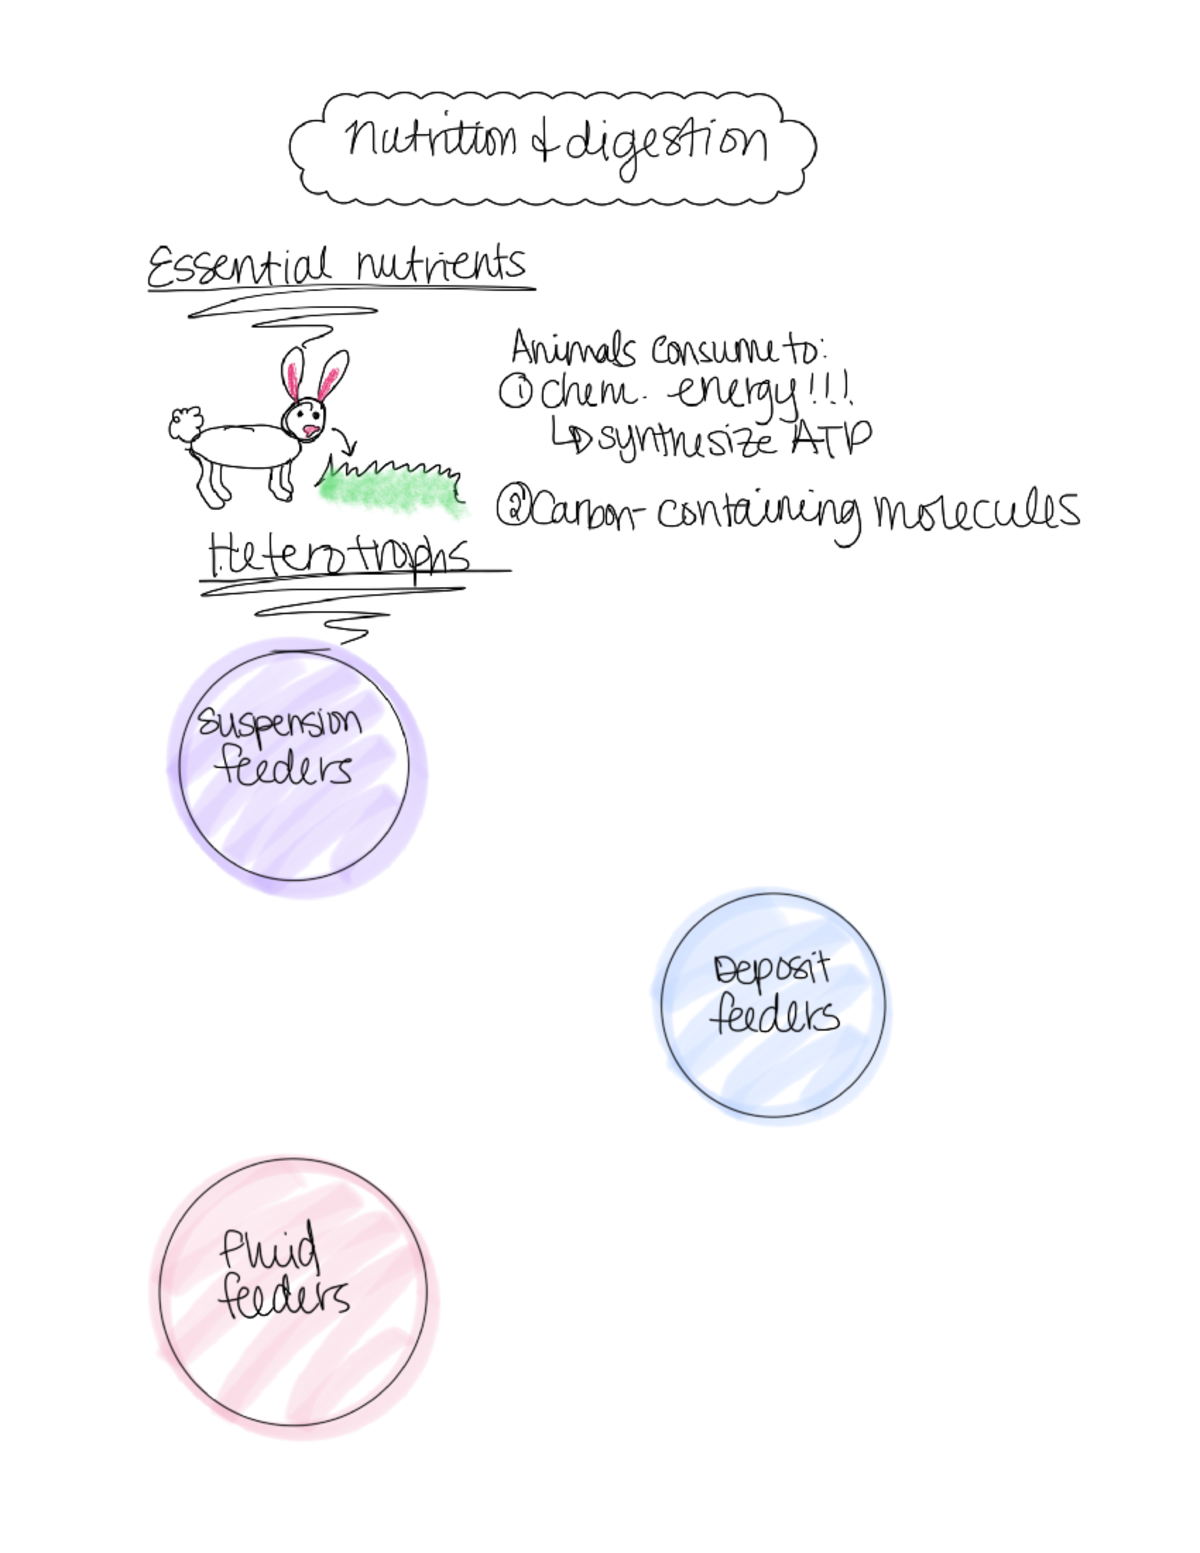 nutrition & digestion
Essential nutrients
Animals consume to:
① chem. energy!!!
↳ synthesize ATP
② Carbon-containing molecules
Heterotrophs
Suspension
feeders
Deposit
feeders
fluid
feeders